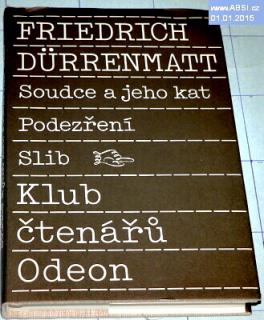 www.ABSI.cz
01.01.2015
FRIEDRICH
DÜRRENMATT
Soudce a jeho kat
Podezření
Slib
Klub
čtenářů
Odeon